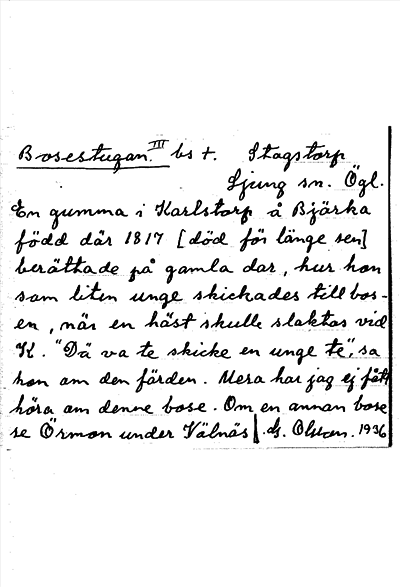 Bosestugan.III bs †. Stagstorp
Ljung sn. Ögl.
En gumma i Karlstorp å Bjärka
född där 1817 [död för länge sen]
berättade på gamla dar, hur hon
som liten unge skickades till bos-
en, när en häst skulle slaktas vid
K. "Dä va te skicke en unge te", sa
hon om den färden. Mera har jag ej fått
höra om denne bose. Om en annan bose
se Örmon under Välnäs G. Olson. 1936